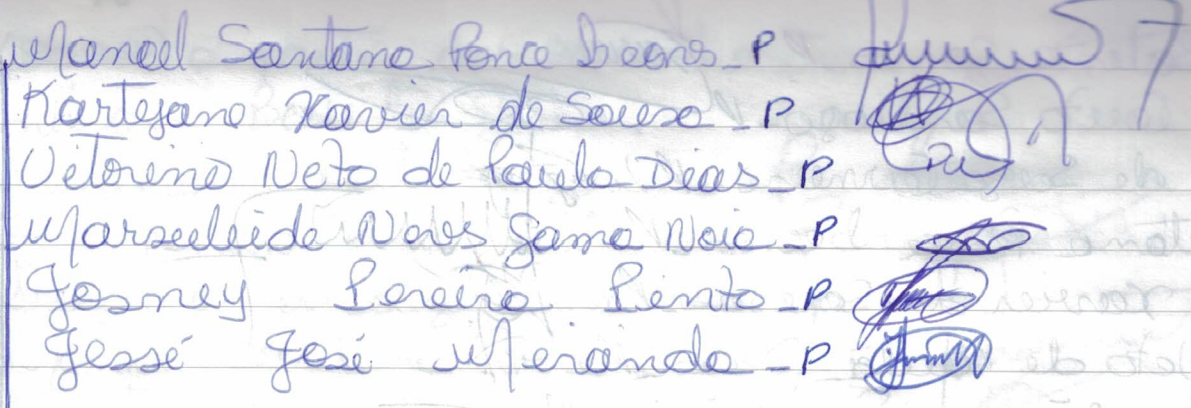 Manoel Santana Ponce Leones - P
Kartejane Xavier de Sousa - P
Vitorino Neto de Paula Dias - P
Marseleide Neves Gama Naia - P
Josney Pereira Pinto - P
Jessé José Miranda - P